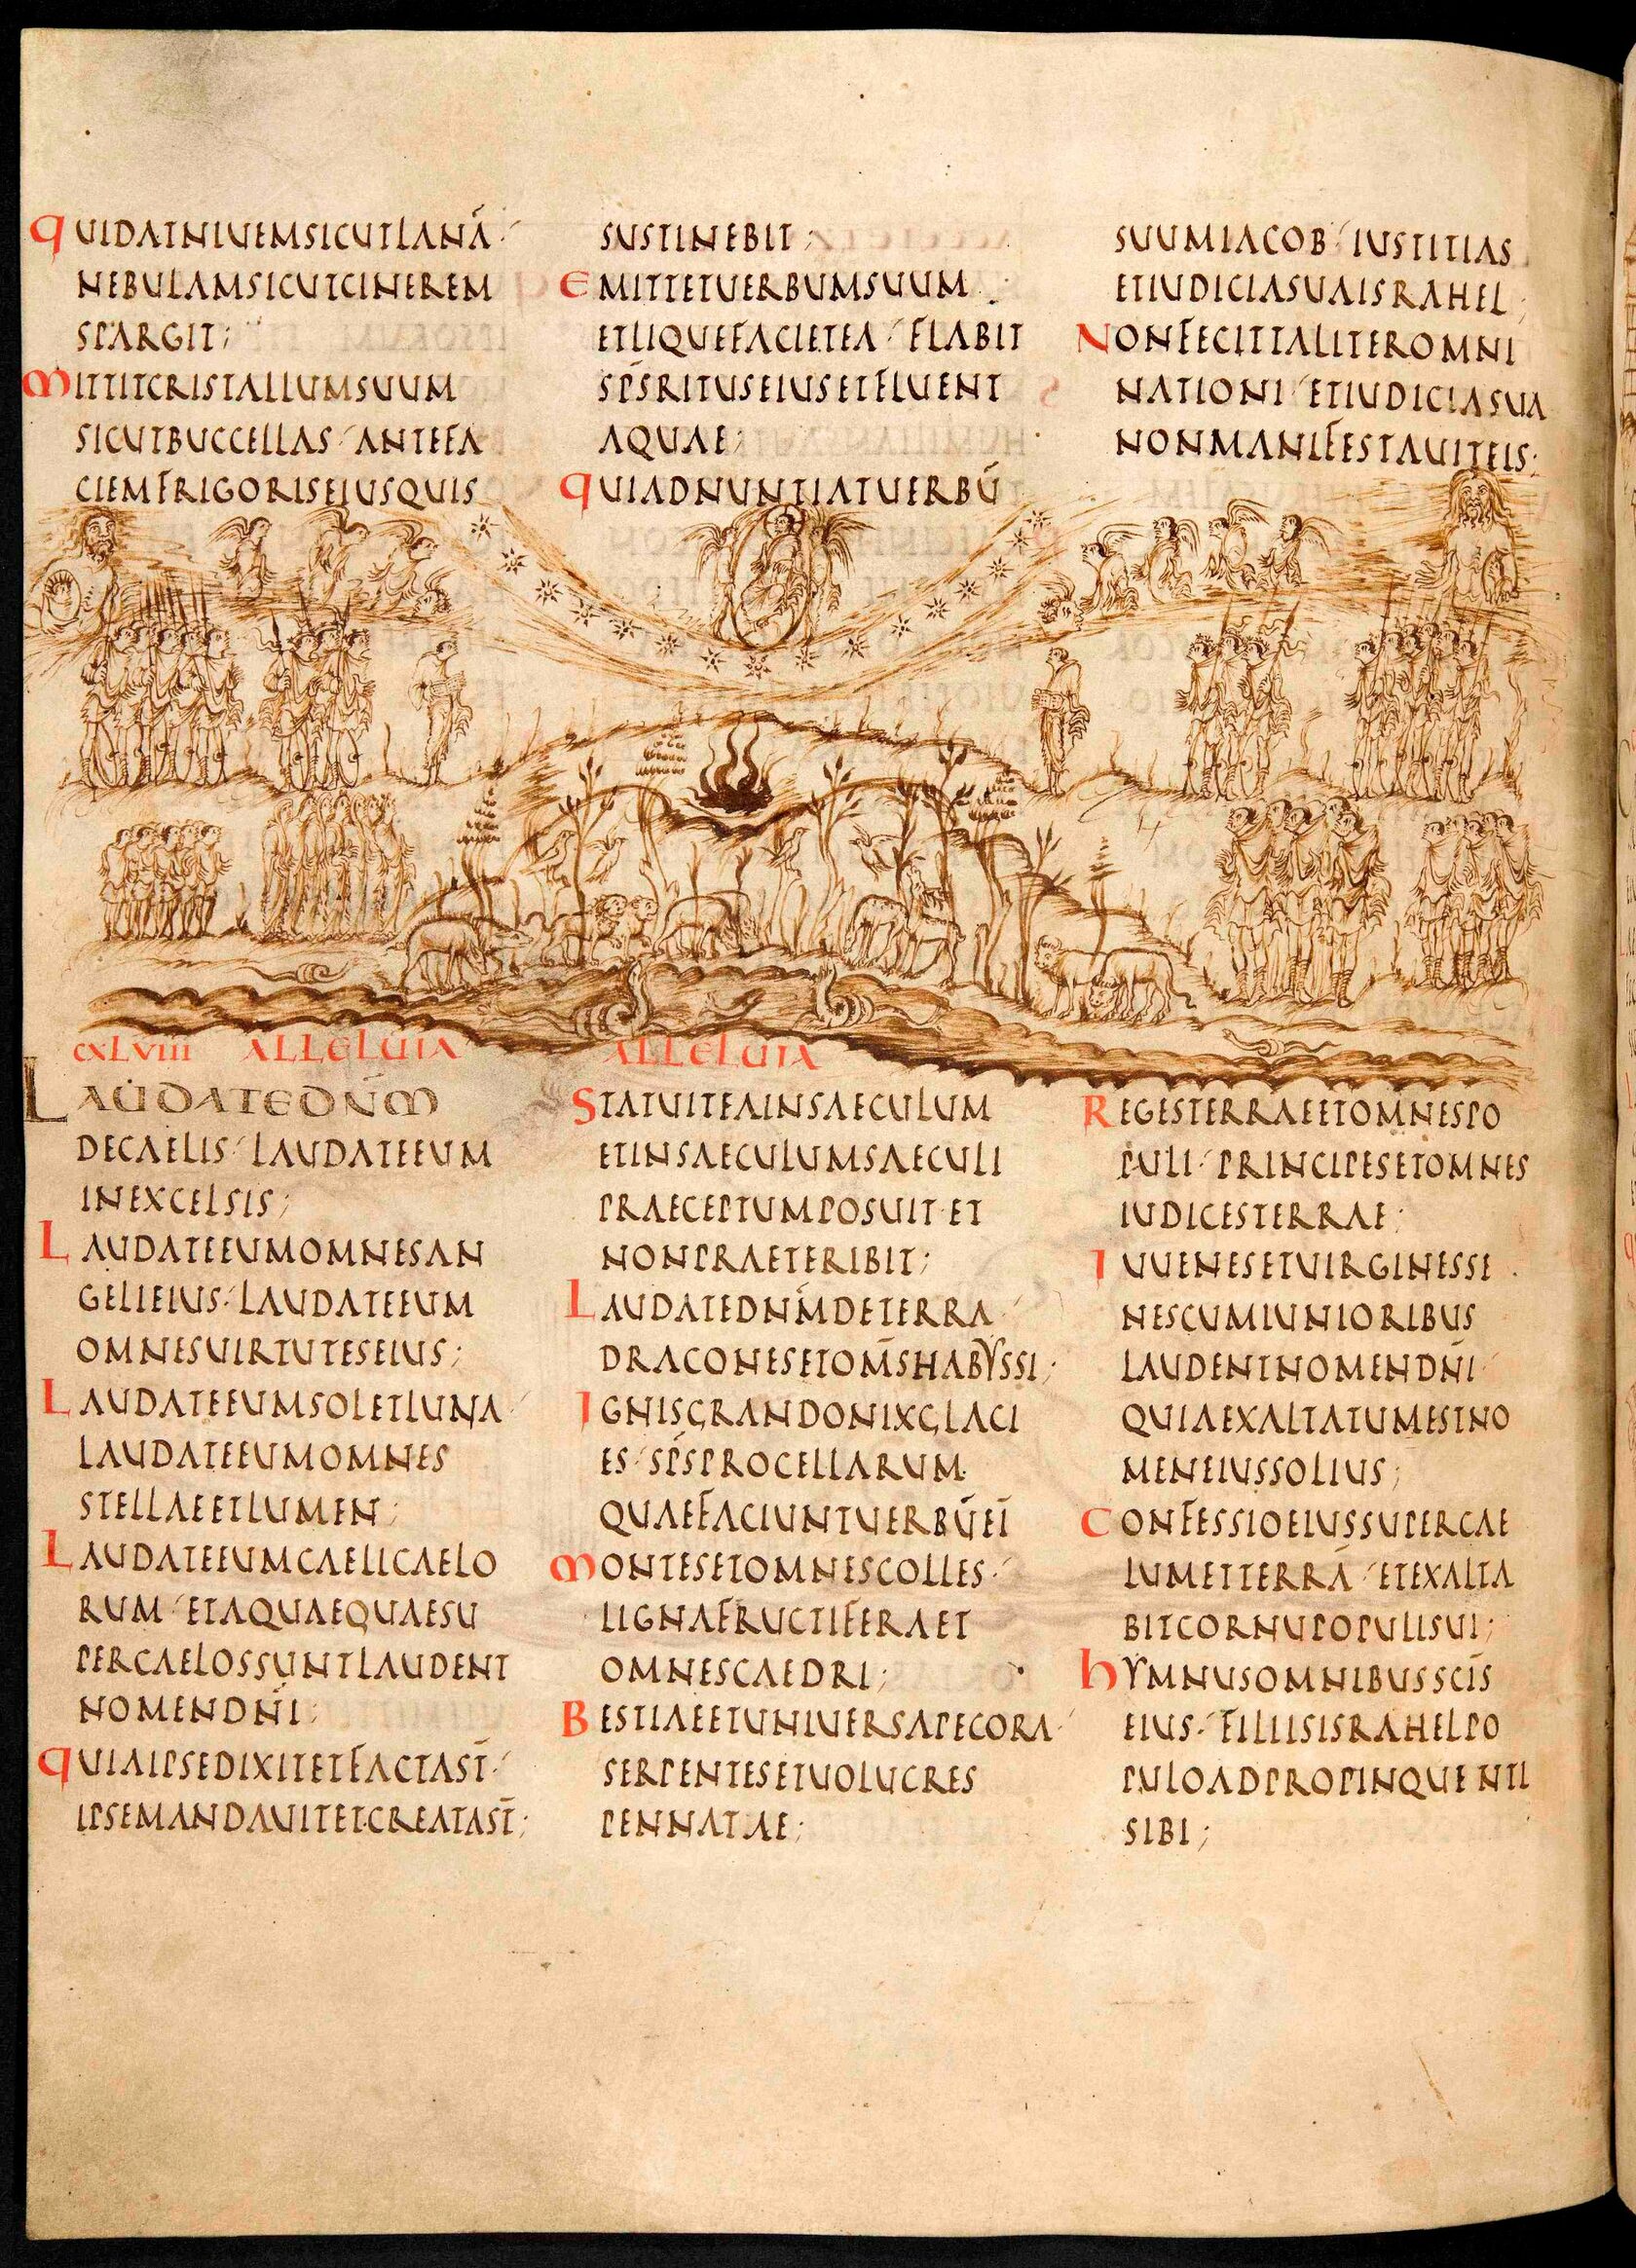 QUIDATNIUEMSICUTLANĀ
NEBULAMSICUTCINEREM
SPARGIT;
MITTITCRISTALLUMSUUM
SICUTBUCCELLAS·ANTEFA
CIEMFRIGORISEIUSQUIS
SUSTINEBIT;
EMITTETUERBUMSUUM
ETLIQUEFACIETEA·FLABIT
SPŚRITUSEIUSETFLUENT
AQUAE;
QUIADNUNTIATUERBŪ
SUUMIACOB·IUSTITIAS
ETIUDICIASUAISRAHEL;
NONFECITTALITEROMNI
NATIONI·ETIUDICIASUA
NONMANIFESTAUITEIS;
CXLVIII ALLELUIA
LAUDATEDNM̄
DECAELIS·LAUDATEEUM
INEXCELSIS;
LAUDATEEUMOMNESAN
GELIEIUS·LAUDATEEUM
OMNESUIRTUTESEIUS;
LAUDATEEUMSOLETLUNA·
LAUDATEEUMOMNES
STELLAEETLUMEN;
LAUDATEEUMCAELICAELO
RUM·ETAQUAEQUAESU
PERCAELOSSUNTLAUDENT
NOMENDN̄I;
QUIAIPSEDIXITETFACTAST̄·
IPSEMANDAUITETCREATAST̄;
ALLELUIA
STATUITEAINSAECULUM
ETINSAECULUMSAECULI
PRAECEPTUMPOSUIT·ET
NONPRAETERIBIT;
LAUDATEDNM̄DETERRA·
DRACONESETOM̄SHABYSSI;
IGNISGRANDONIXGLACI
ES·SPS̄PROCELLARUM
QUAEFACIUNTUERBŪEI̅
MONTESETOMNESCOLLES·
LIGNAFRUCTIFERAET
OMNESCAEDRI;
BESTIAEETUNIUERSAPECORA·
SERPENTESETUOLUCRES
PENNATAE;
REGESTERRAEETOMNESPO
PULI·PRINCIPESETOMNES
IUDICESTERRAE;
IUUENESETUIRGINESSE
NESCUMIUNIORIBUS
LAUDENTNOMENDN̄I·
QUIAEXALTATUMESTNO
MENEIUSSOLIUS;
CONFESSIOEIUSSUPERCAE
LUMETTERRĀ·ETEXALTA
BITCORNUPOPULISUI;
HYMNUSOMNIBUSSCĪS
EIUS·FILIISISRAHELPO
PULOADPROPINQUENTI
SIBI;